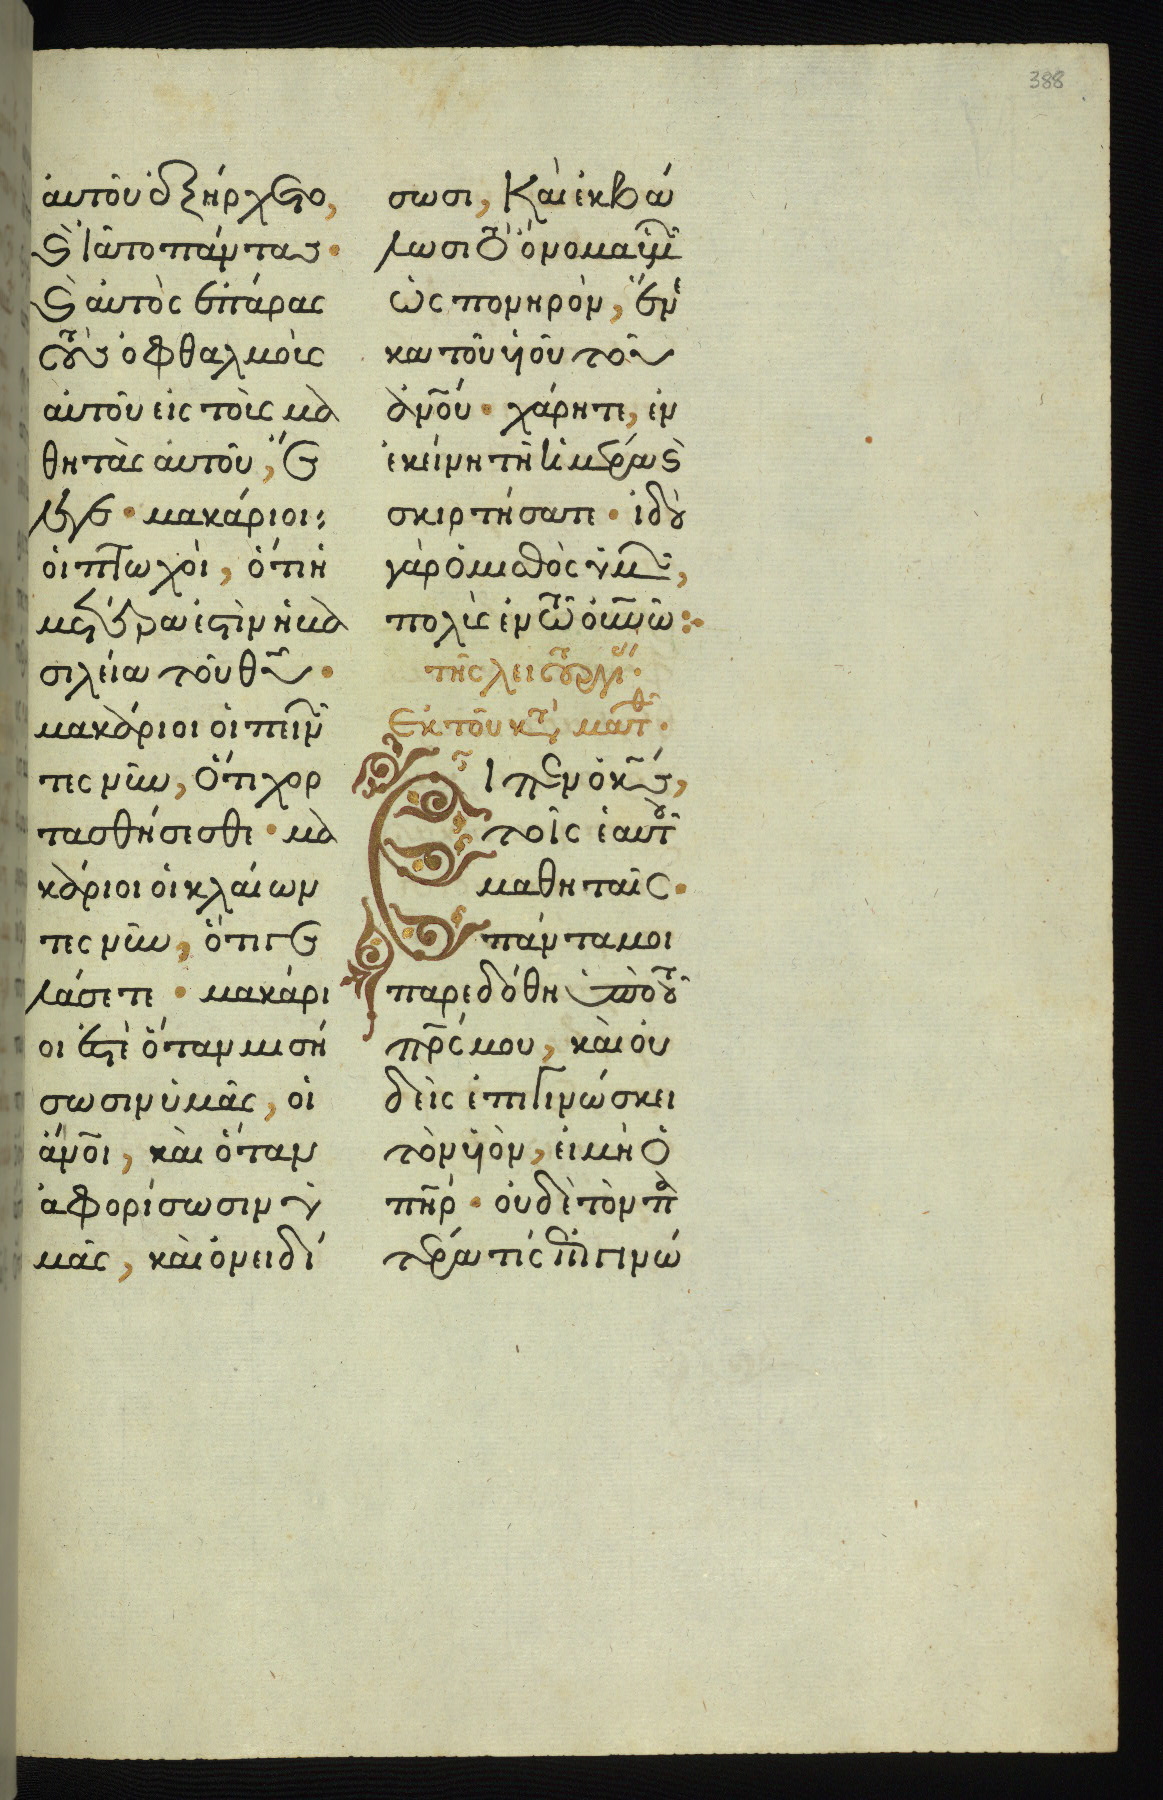 388
ἀυτοῦ ἐξήρχετο,
καὶ ἰᾶτο πάντας·
καὶ ἀυτὸς ἐπάρας
τοὺς ὀφθαλμοὺς
ἀυτοῦ εἰς τοὺς μα
θητὰς ἀυτοῦ, ἔ
λεγε· μακάριοι
οἱ πτωχοὶ, ὅτι ἡ
μετέρα ἐστὶν ἡ βα
σιλεία τοῦ θυ·
μακάριοι οἱ πεινῶν
τες νῦν, ὅτι χορ
τασθήσεσθε· μα
κάριοι οἱ κλαίων
τες νῦν, ὅτι γε
λάσετε· μακάρι
οι ἐστὲ ὅταν μισή
σωσιν ὑμᾶς, οἱ
ἄνοι, καὶ ὅταν
ἀφορίσωσιν ὑ
μᾶς, καὶ ὀνειδί
σωσι, Καὶ ἐκβά
λωσι τὸ ὄνομα ὑμῶν
ὡς πονηρὸν, ἕνε
κα τοῦ υἱοῦ τοῦ
ἀνου· χάρητε, ἐν
ἐκείνη τῆ ἡμέρα καὶ
σκιρτήσατε· ἰδοὺ
γὰρ ὁ μισθὸς ὑμῶν,
πολὺς ἐν τῶ οὐνῶ:·
τῆς λειτουργίας·
Εκ τοῦ κατὰ ματθ·
Ειπεν ὁ κς,
τοῖς ἑαυτοῦ
μαθηταῖς·
πάντα μοι
παρεδόθη ὑπὸ τοῦ
πρς μου, καὶ οὐ
δεὶς ἐπιγινώσκει
τὸν υἱὸν, εἰ μὴ ὁ
πηρ· οὐδὲ τὸν πα
τέρα τίς ἐπιγινώ